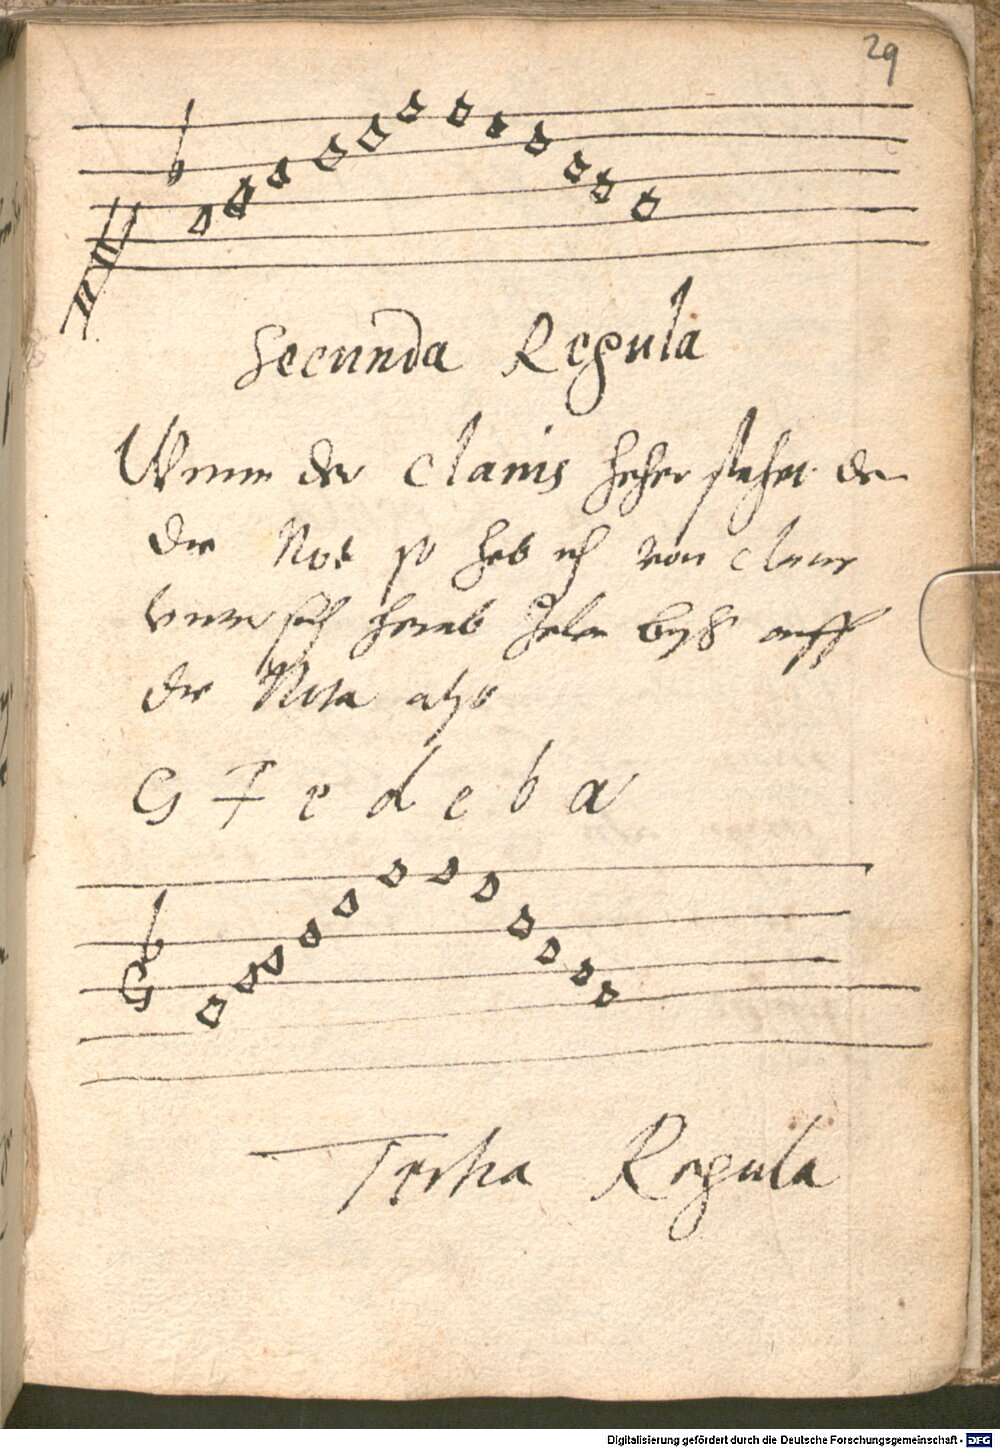 29
Secunda Regula
Wenn der clauis heher stehet den
die Not so heb ich von claue
vnter sich herab Zelen byß auff
die Nota also
G F e d c b a
Tertia Regula
Digitalisierung gefördert durch die Deutsche Forschungsgemeinschaft - DFG